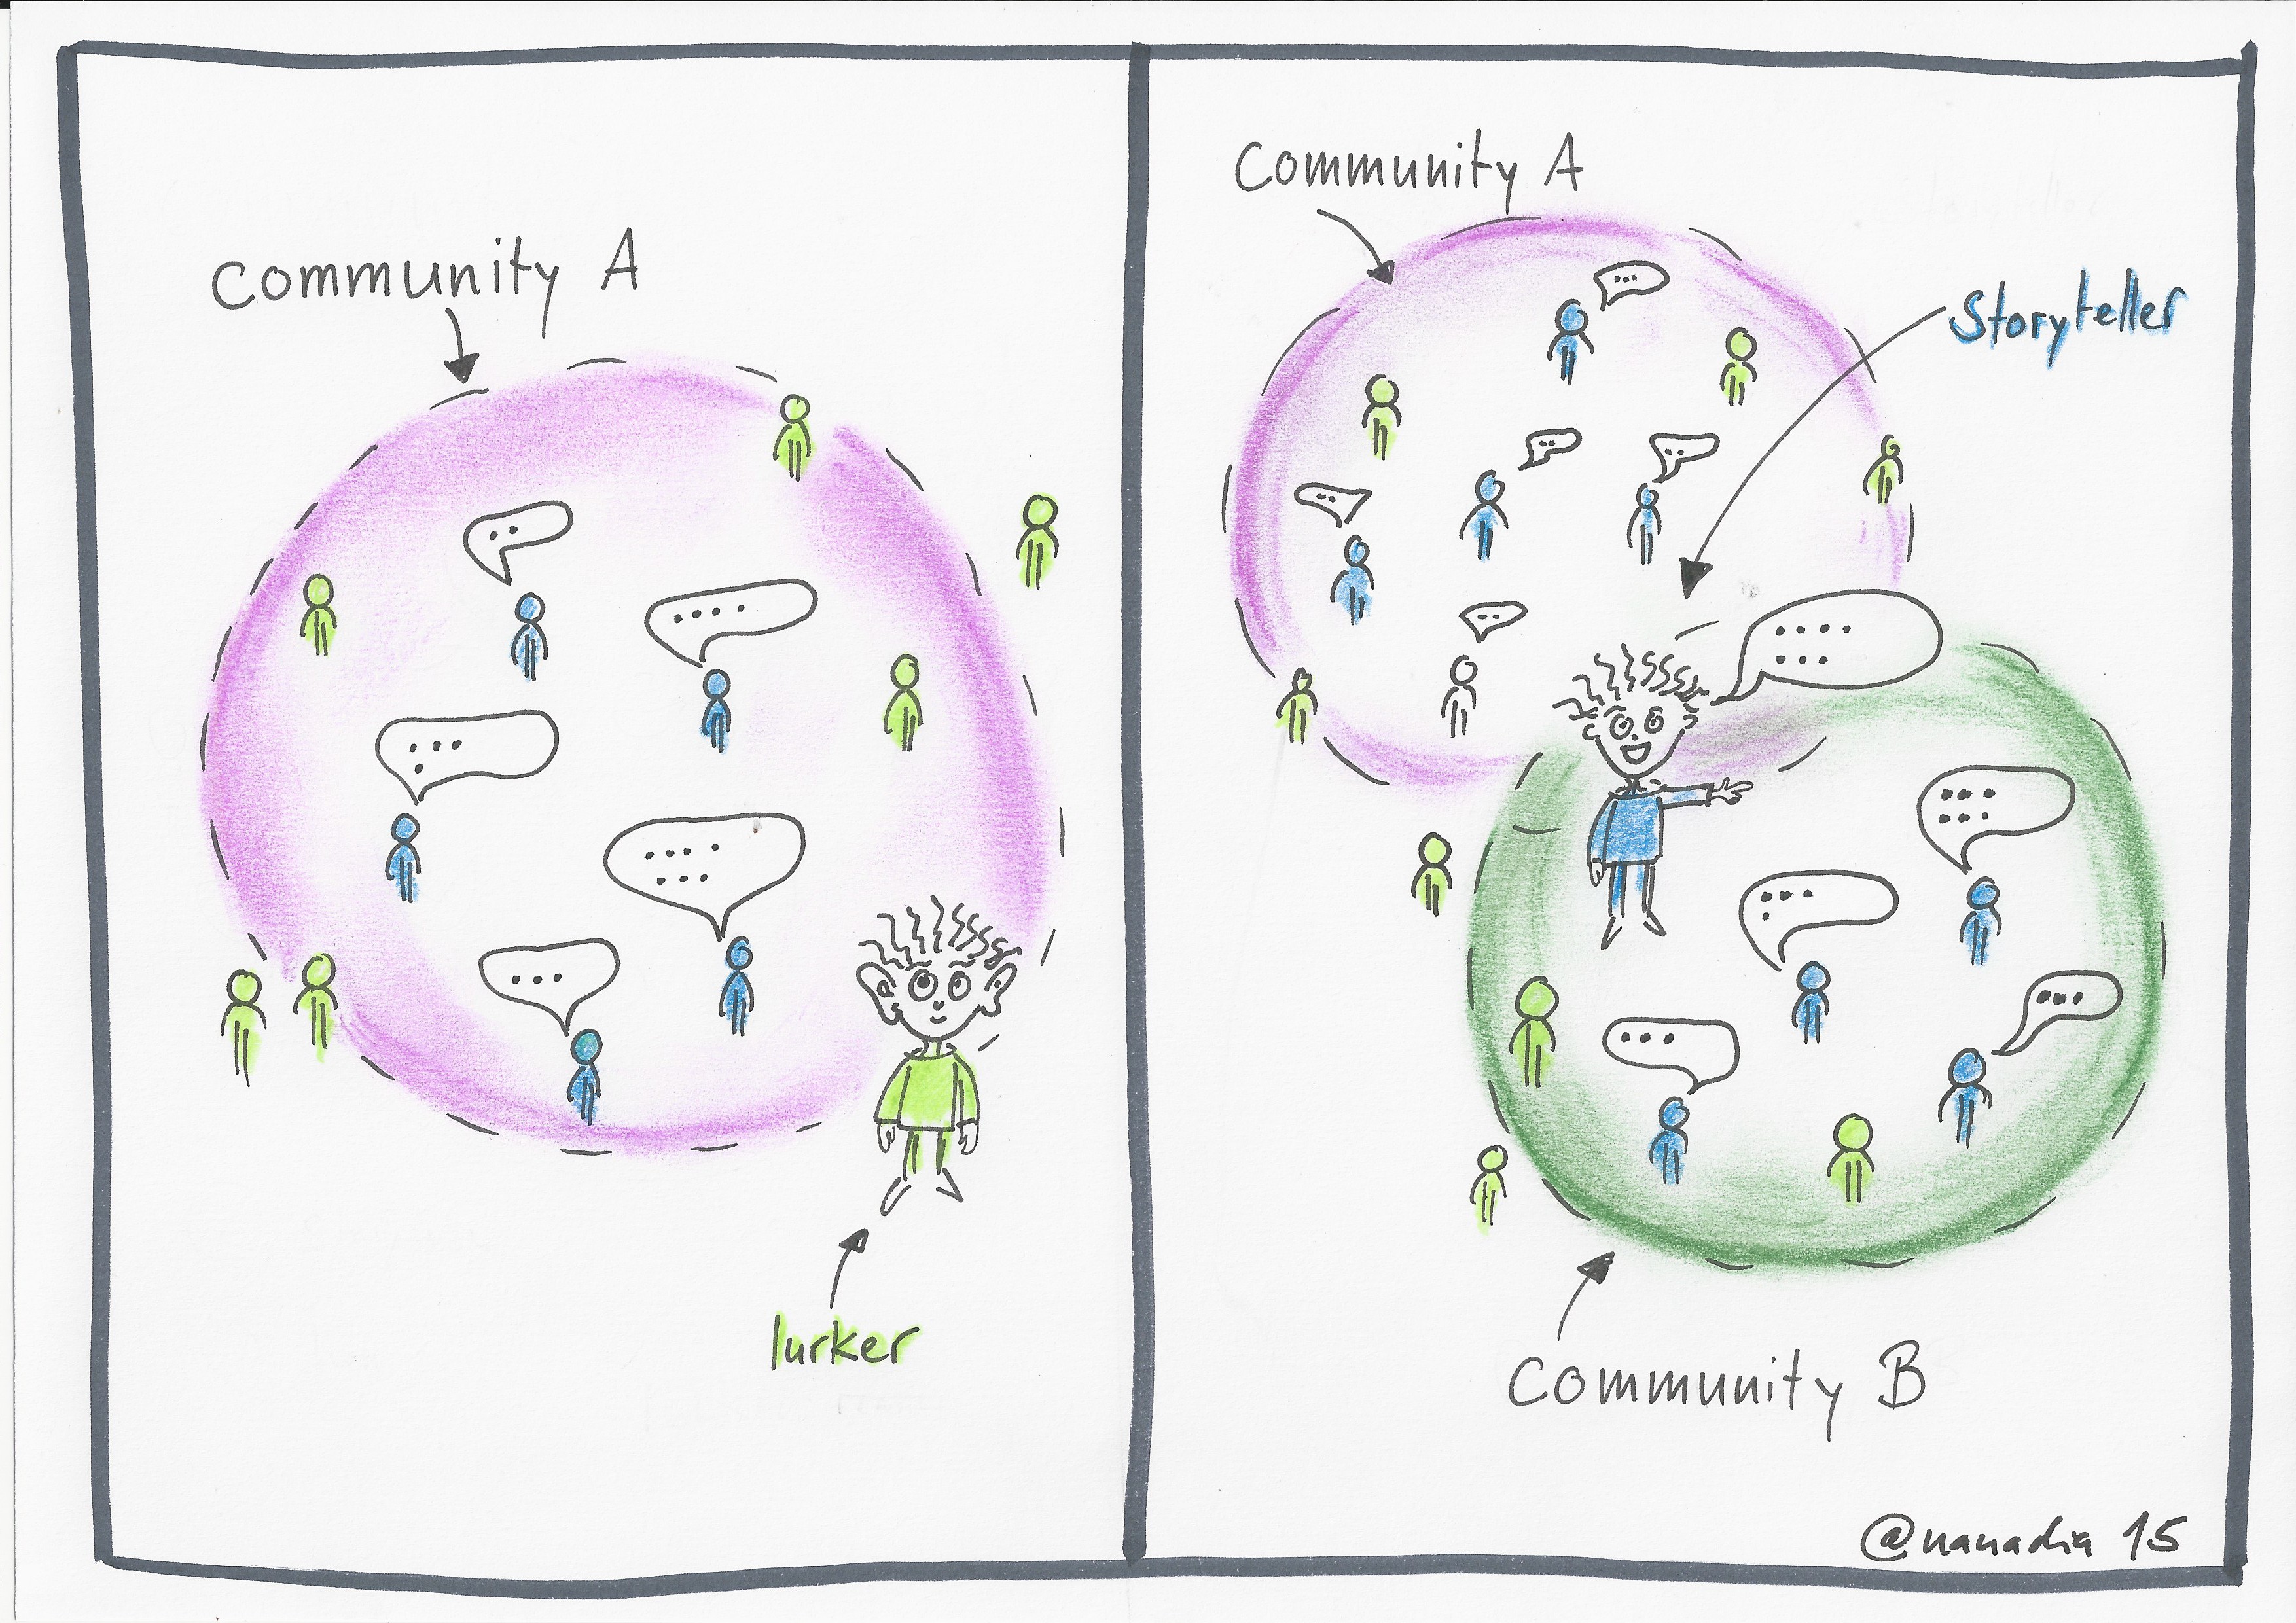 Community A
lurker
Community A
Storyteller
Community B
@nanadia 15